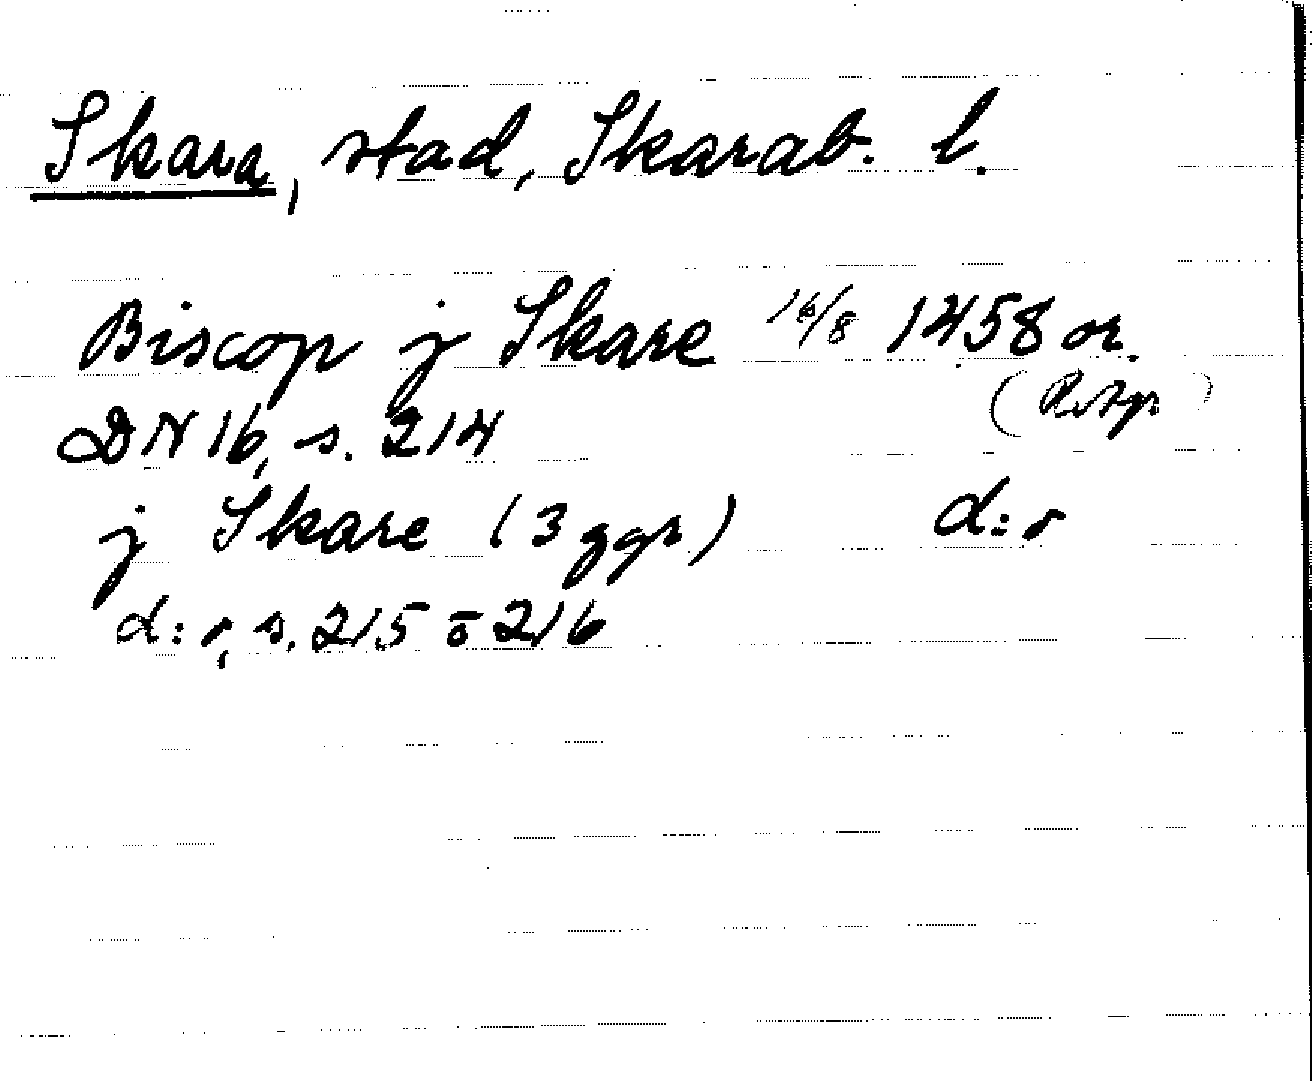 Skara, stad, Skarab. l.
Biscop j Skare 16/8 1458 or.
DN 16, s. 214
j Skare (3 ggr) d:o
d:o, s. 215 o 216